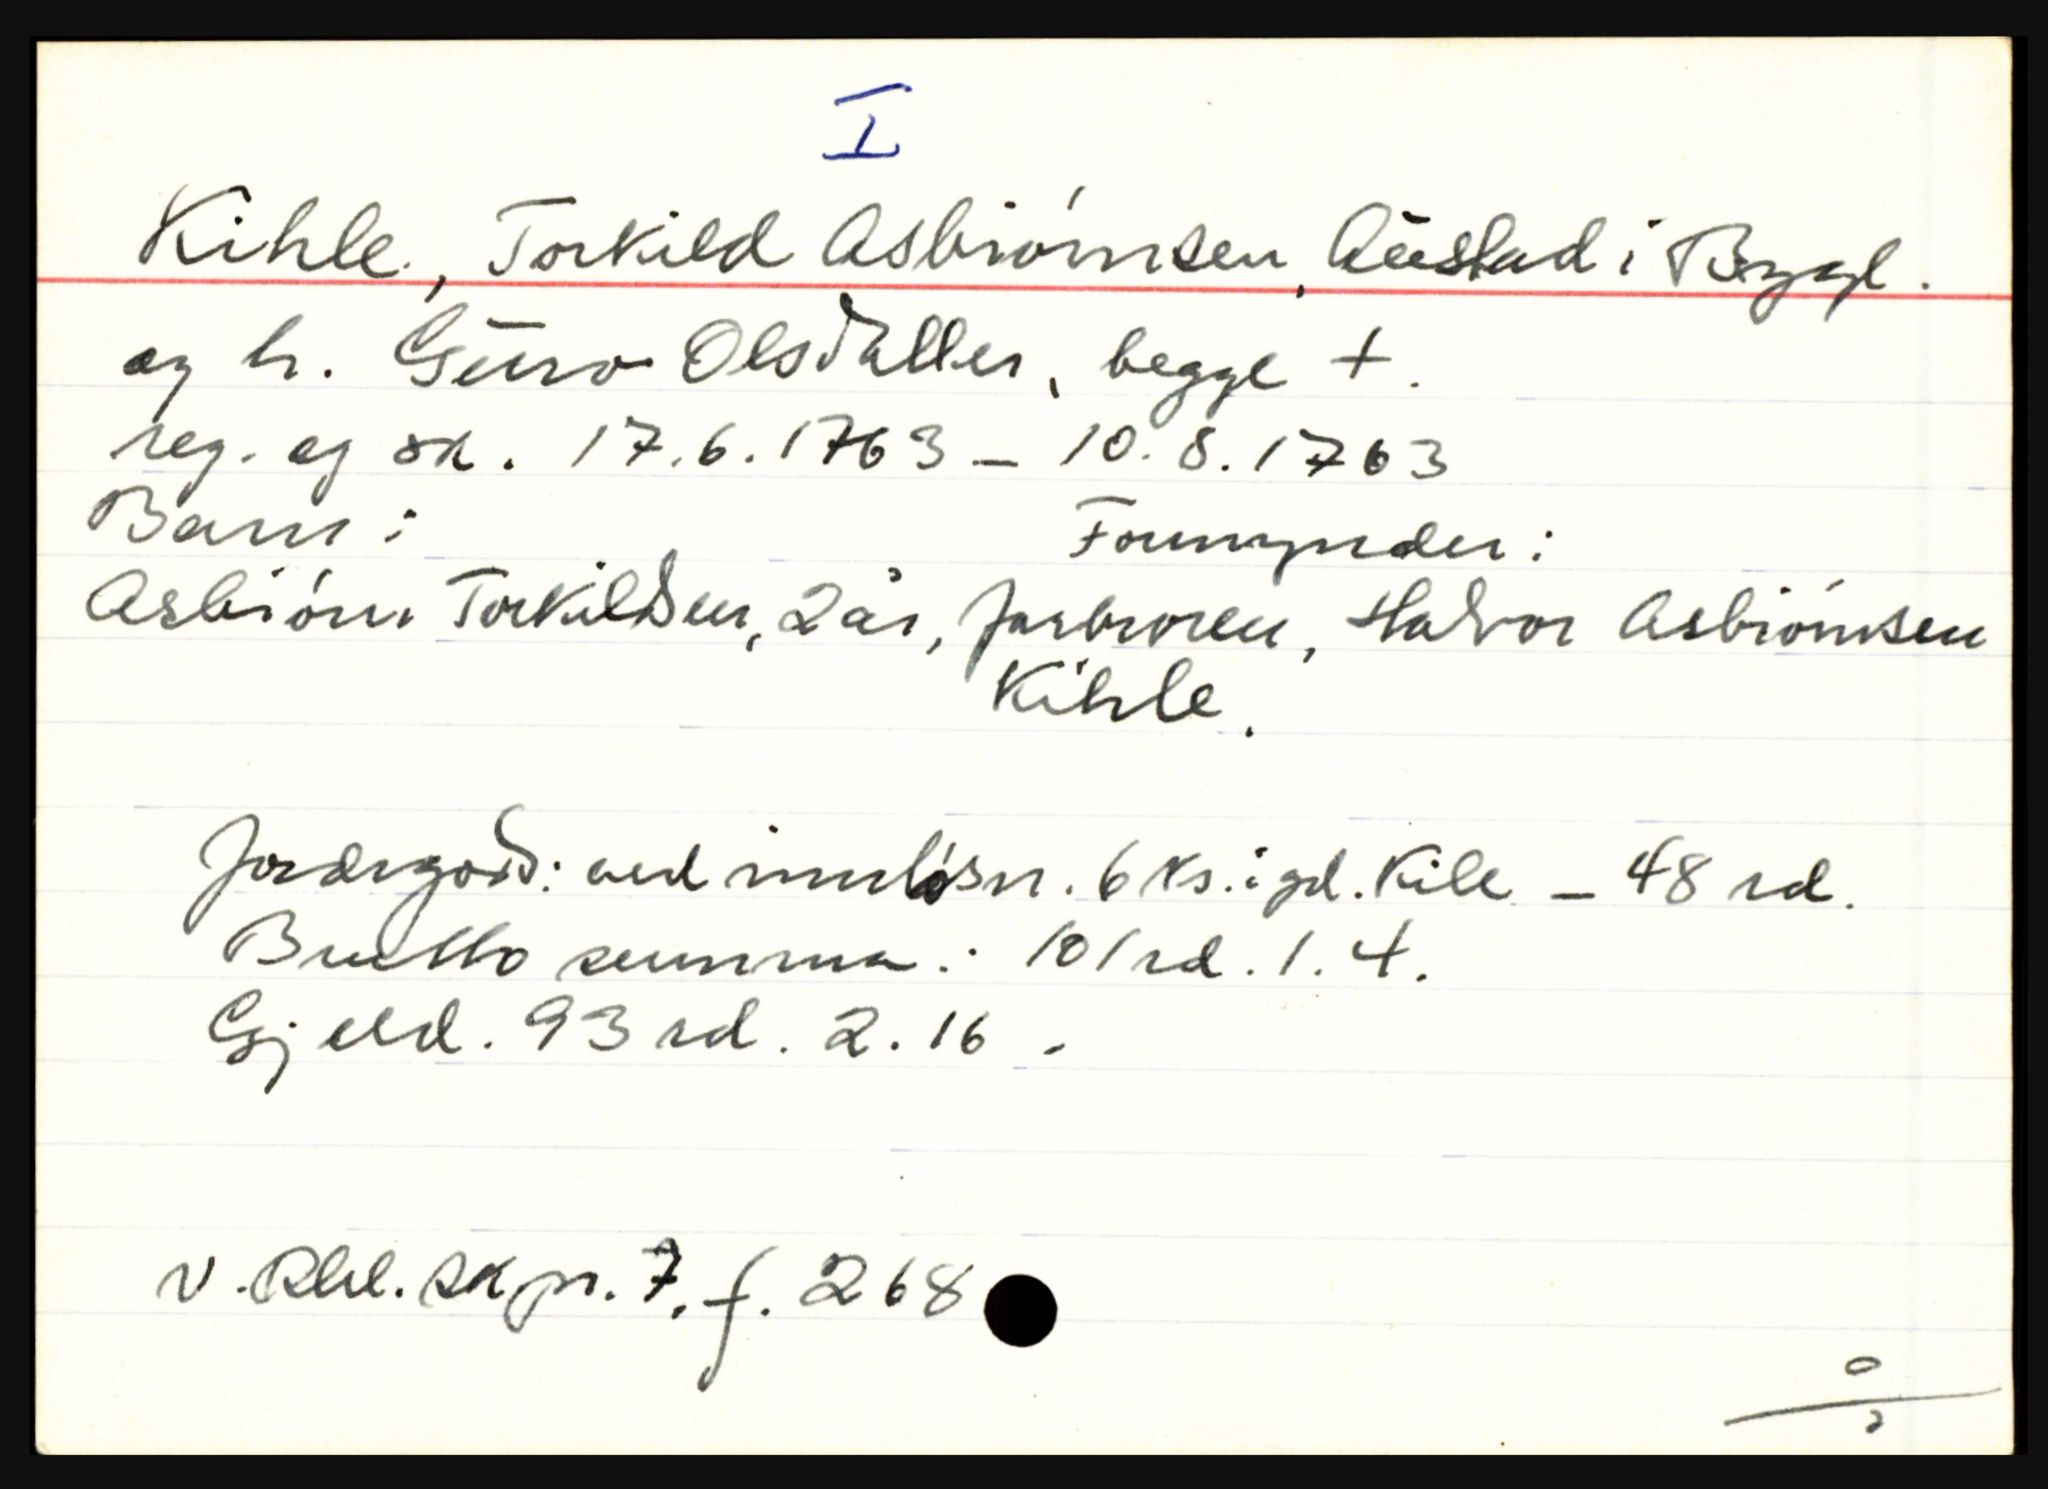 I
Kihle, Torkild Asbiórnsen, Austad i Bygl.
og h. Guro Olsdatter, begge +.
reg. og sk. 17.6.1763 - 10.8.1763
Barn: Formynder:
Asbiórn Torkildsen, 2 år, farbroren, Halvor Asbiórnsen
Kihle.
Jordegods: ved innløsn. 6 ks. i gd. Kile - 48 rd.
Brutto summa: 101 rd. 1. 4.
Gjeld. 93 rd. 2. 16.
v. Rbl. sk pr. 7. f. 268